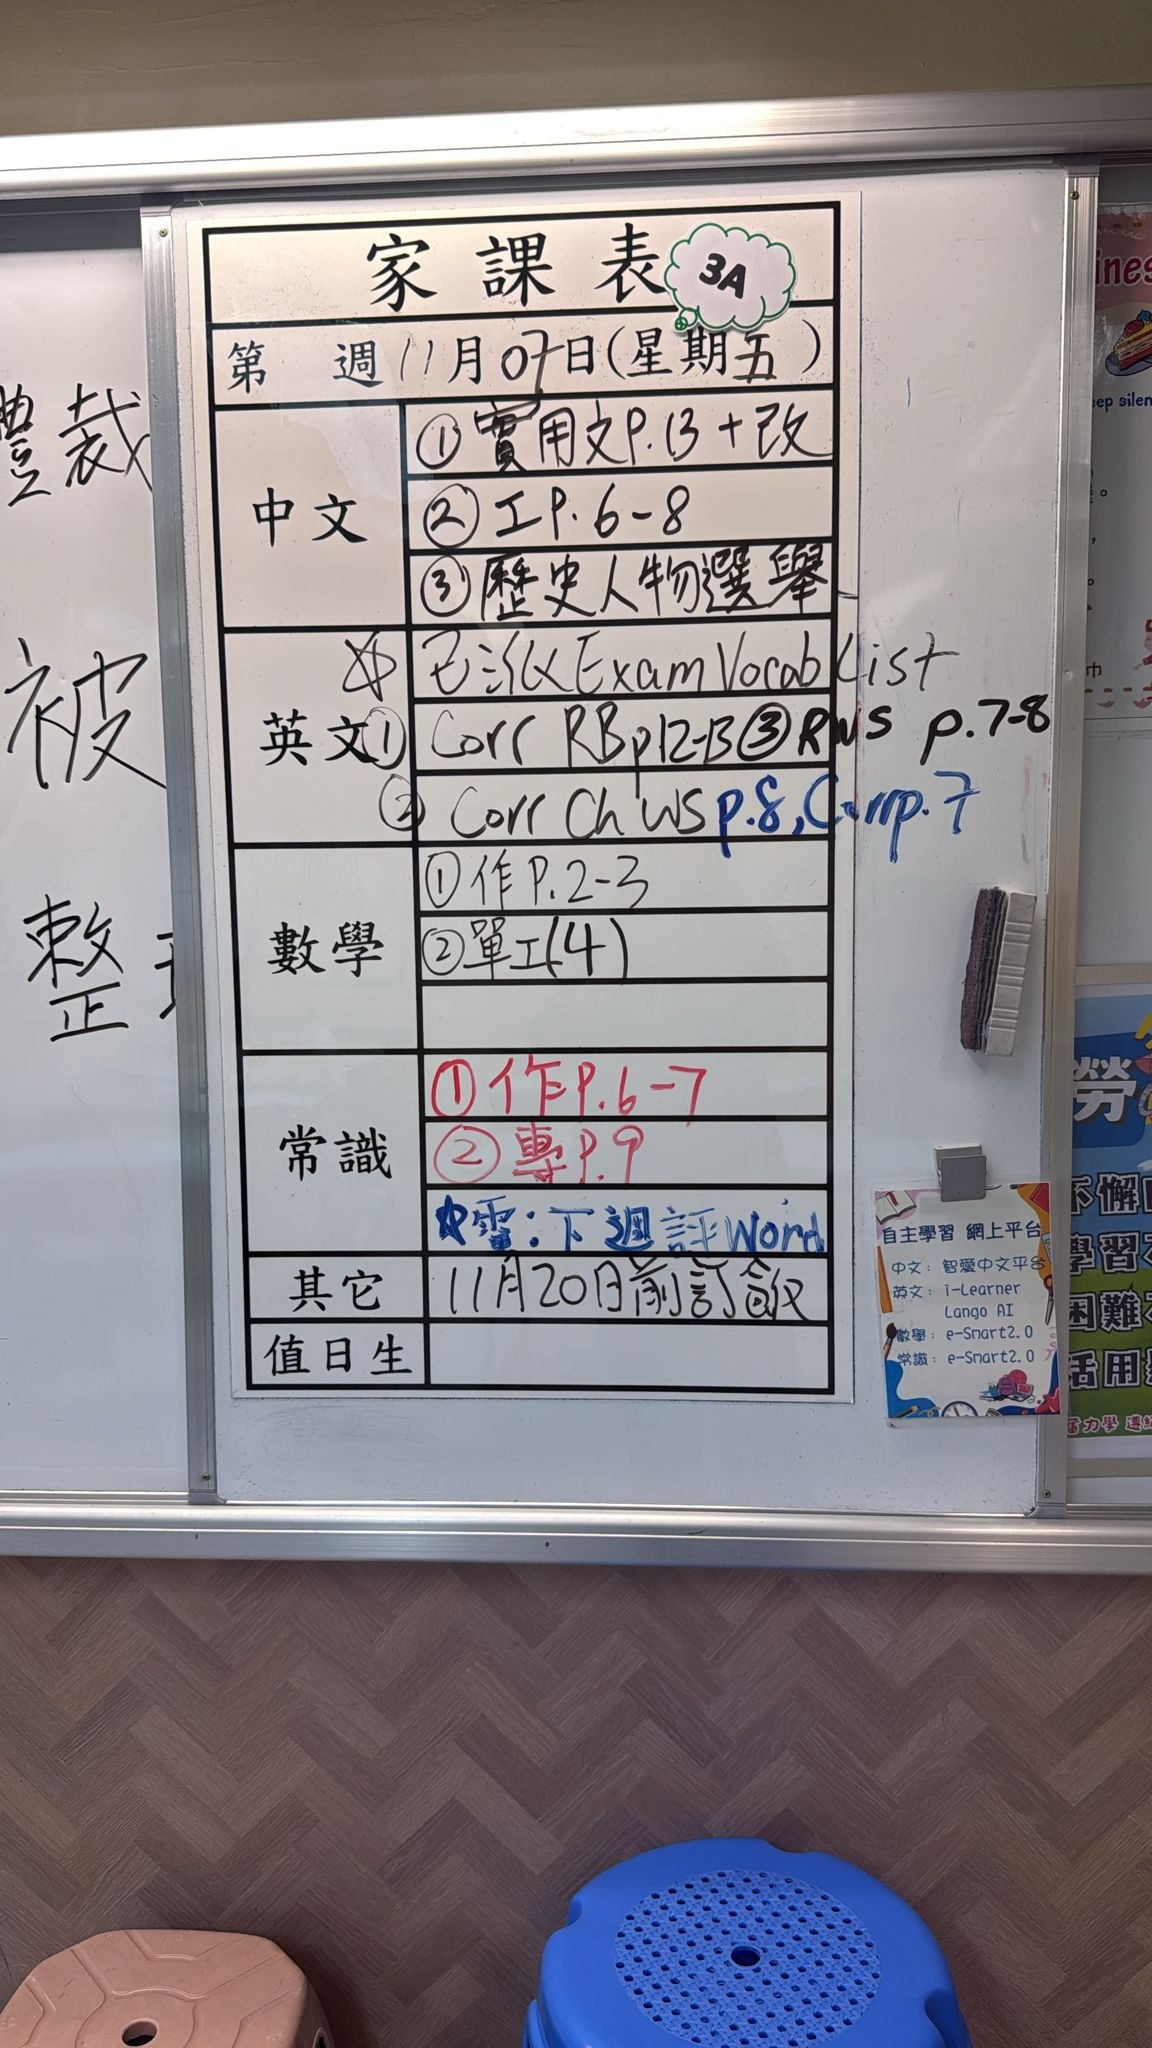 家課表 3A
第 週 11月07日(星期五)
中文
① 實用文P.13+改
② 工P.6-8
③ 歷史人物選舉
英文
☆ 已派Exam Vocab List
① Corr RB p12-13 ③ RWS p.7-8
② Corr Ch WS p.8, Corr p.7
數學
① 作P.2-3
② 單工(4)
常識
① 作P.6-7
② 專P.9
☆電:下週評Word
其它
11月20日前訂飯
值日生
裁
被
整
自主學習 網上平台
中文: 智愛中文平台
英文: i-Learner
Lango AI
數學: e-Smart2.0
常識: e-Smart2.0
勞
不懈
學習
困難
活用
奮力學